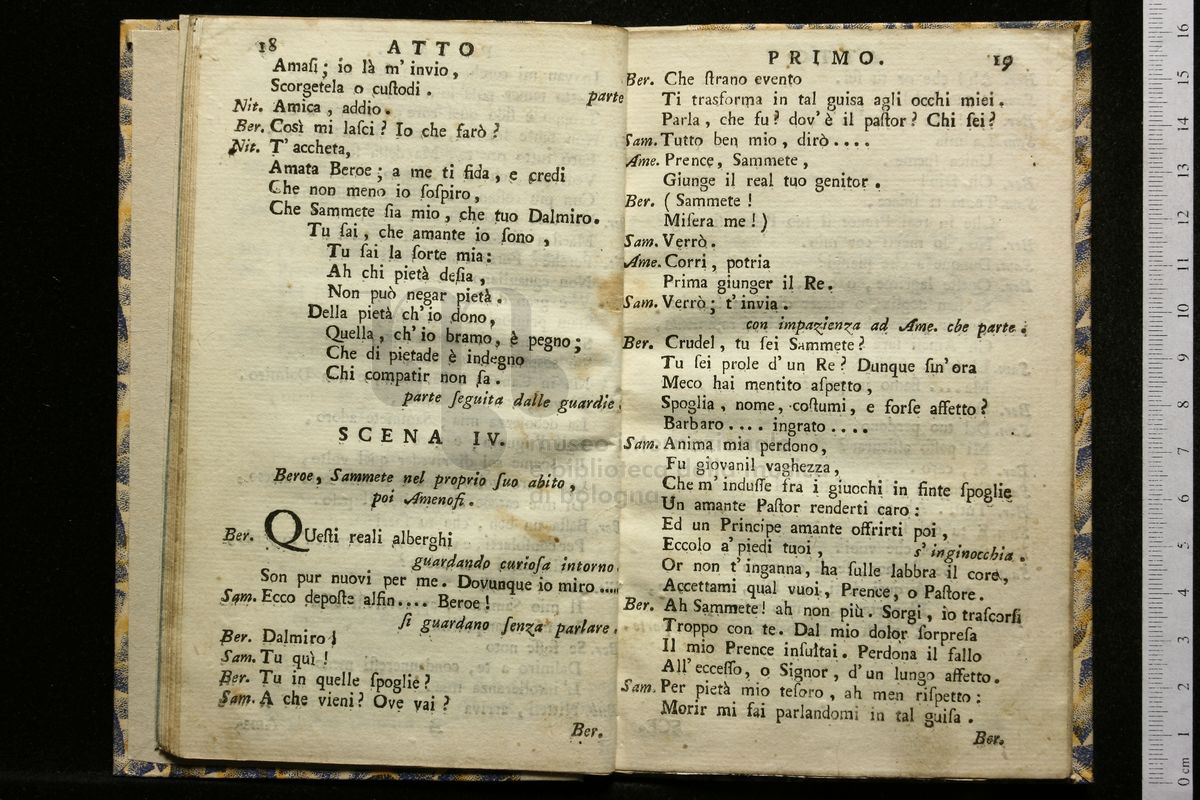 18 ATTO
Amaſi; io là m' invio,
Scorgetela o cuſtodi. parte
Nit. Amica, addio.
Ber. Così mi laſci? Io che farò?
Nit. T' accheta,
Amata Beroe; a me ti fida, e credi
Che non meno io ſoſpiro,
Che Sammete ſia mio, che tuo Dalmiro.
Tu ſai, che amante io ſono,
Tu ſai la ſorte mia:
Ah chi pietà deſia,
Non può negar pietà.
Della pietà ch' io dono,
Quella, ch' io bramo, è pegno;
Che di pietade è indegno
Chi compatir non ſa.
parte ſeguita dalle guardie.
SCENA IV.
Beroe, Sammete nel proprio ſuo abito,
poi Amenofi.
Ber. QUeſti reali alberghi
guardando curioſa intorno.
Son pur nuovi per me. Dovunque io miro....
Sam. Ecco depoſte alfin.... Beroe!
ſi guardano ſenza parlare.
Ber. Dalmiro!
Sam. Tu quì!
Ber. Tu in quelle ſpoglie?
Sam. A che vieni? Ove vai?
Ber.
PRIMO. 19
Ber. Che ſtrano evento
Ti trasforma in tal guisa agli occhi miei.
Parla, che fu? dov' è il paſtor? Chi ſei?
Sam. Tutto ben mio, dirò....
Ame. Prence, Sammete,
Giunge il real tuo genitor.
Ber. (Sammete!
Miſera me!)
Sam. Verrò.
Ame. Corri, potria
Prima giunger il Re.
Sam. Verrò; t' invia.
con impazienza ad Ame. che parte.
Ber. Crudel, tu ſei Sammete?
Tu ſei prole d' un Re? Dunque ſin' ora
Meco hai mentito aſpetto,
Spoglia, nome, coſtumi, e forſe affetto?
Barbaro.... ingrato....
Sam. Anima mia perdono,
Fu giovanil vaghezza,
Che m' induſſe fra i giuochi in finte ſpoglie
Un amante Paſtor renderti caro:
Ed un Principe amante offrirti poi,
Eccolo a' piedi tuoi, s' inginocchia.
Or non t' inganna, ha ſulle labbra il core,
Accettami qual vuoi, Prence, o Paſtore.
Ber. Ah Sammete! ah non più. Sorgi, io traſcorſi
Troppo con te. Dal mio dolor ſorpreſa
Il mio Prence inſultai. Perdona il fallo
All' ecceſſo, o Signor, d' un lungo affetto.
Sam. Per pietà mio teſoro, ah men riſpetto:
Morir mi fai parlandomi in tal guiſa.
Ber.